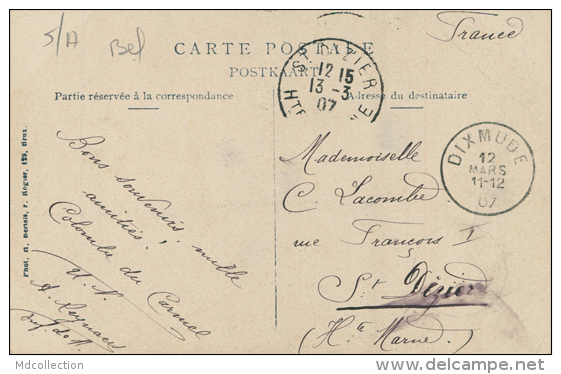 S/A
Bel
France
CARTE POSTALE
POSTKAART
Partie réservée à la correspondance
Adresse du destinataire
ST DIZIER
12 15
13 -3
07
HTE
DIXMUDE
12
MARS
11-12
07
Bons souvenirs, mille
amitiés!
Colombe du Carmel
Mademoiselle
C. Lacombe
rue François I
St Dizier
(Hte Marne)
Mdcollection
www.delcampe.net